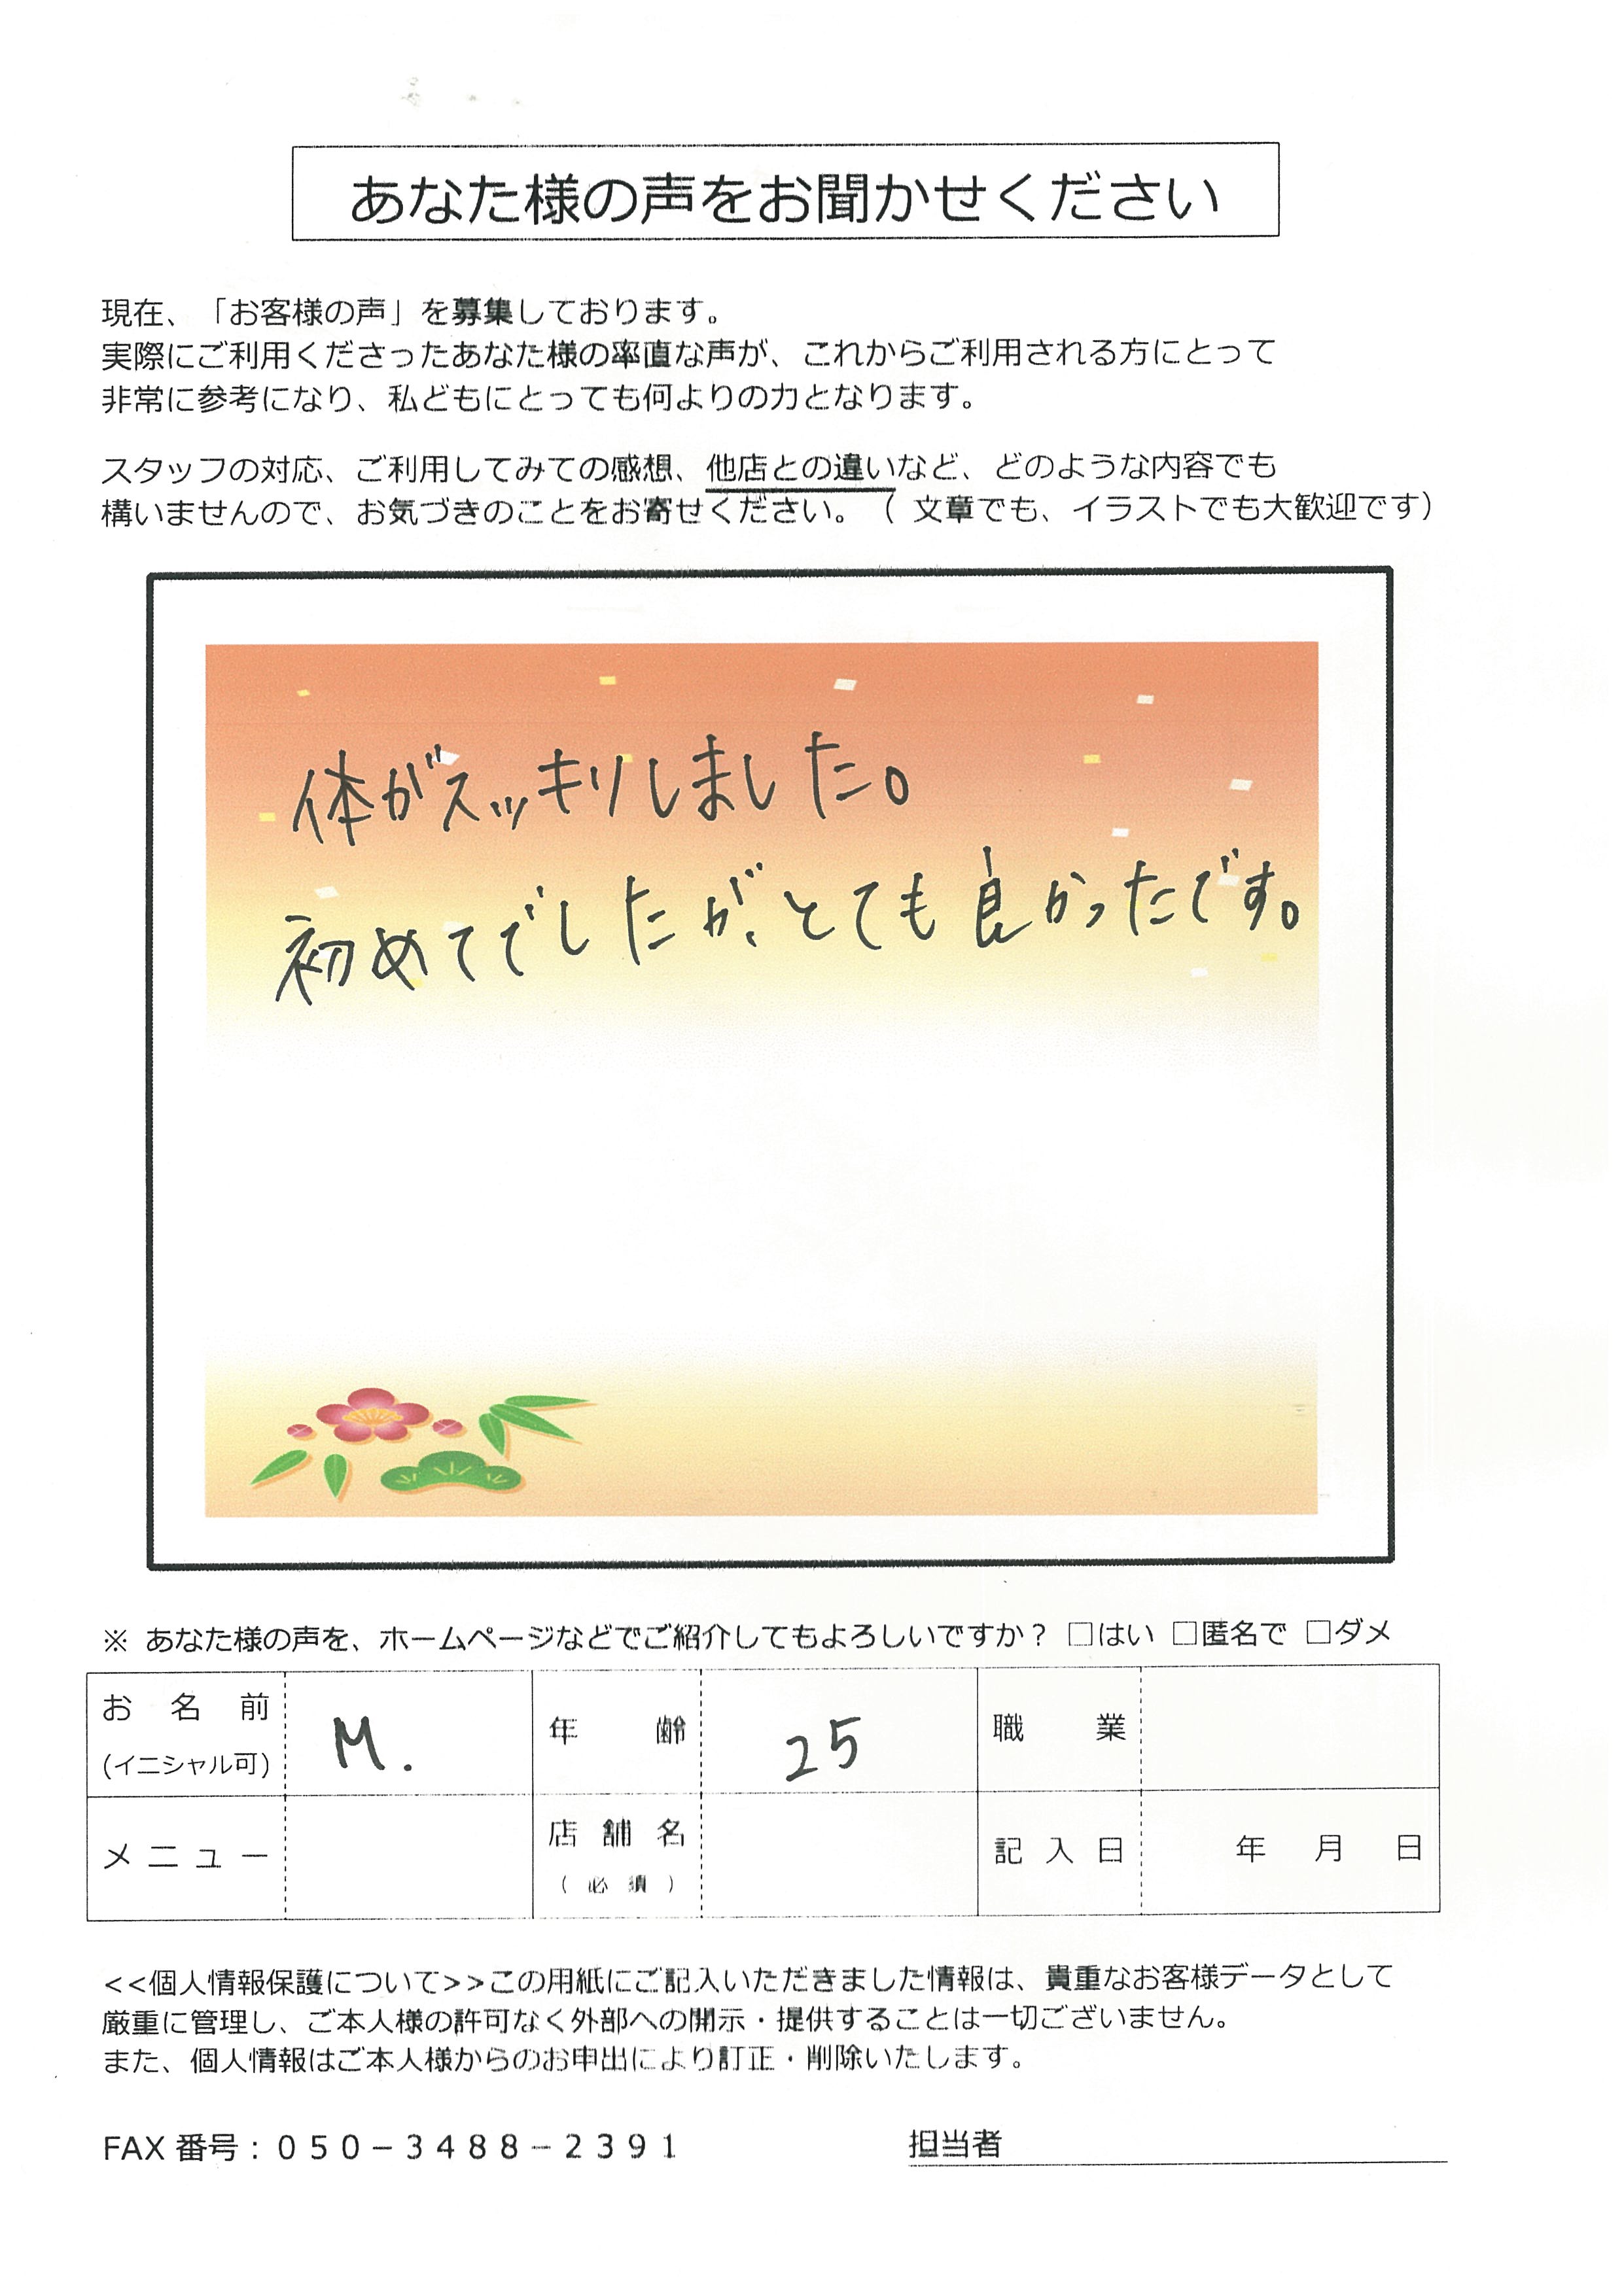 あなた様の声をお聞かせください
現在、「お客様の声」を募集しております。
実際にご利用くださったあなた様の率直な声が、これからご利用される方にとって
非常に参考になり、私どもにとっても何よりの力となります。
スタッフの対応、ご利用してみての感想、他店との違いなど、どのような内容でも
構いませんので、お気づきのことをお寄せください。（文章でも、イラストでも大歓迎です）
体がスッキリしました。
初めてでしたが、とても良かったです。
※ あなた様の声を、ホームページなどでご紹介してもよろしいですか？ □はい □匿名で □ダメ
お名前 (イニシャル可) M. 年齢 25 職業
メニュー 店舗名 (必須) 記入日 年 月 日
<<個人情報保護について>>この用紙にご記入いただきました情報は、貴重なお客様データとして
厳重に管理し、ご本人様の許可なく外部への開示・提供することは一切ございません。
また、個人情報はご本人様からのお申出により訂正・削除いたします。
FAX 番号：０５０－３４８８－２３９１ 担当者